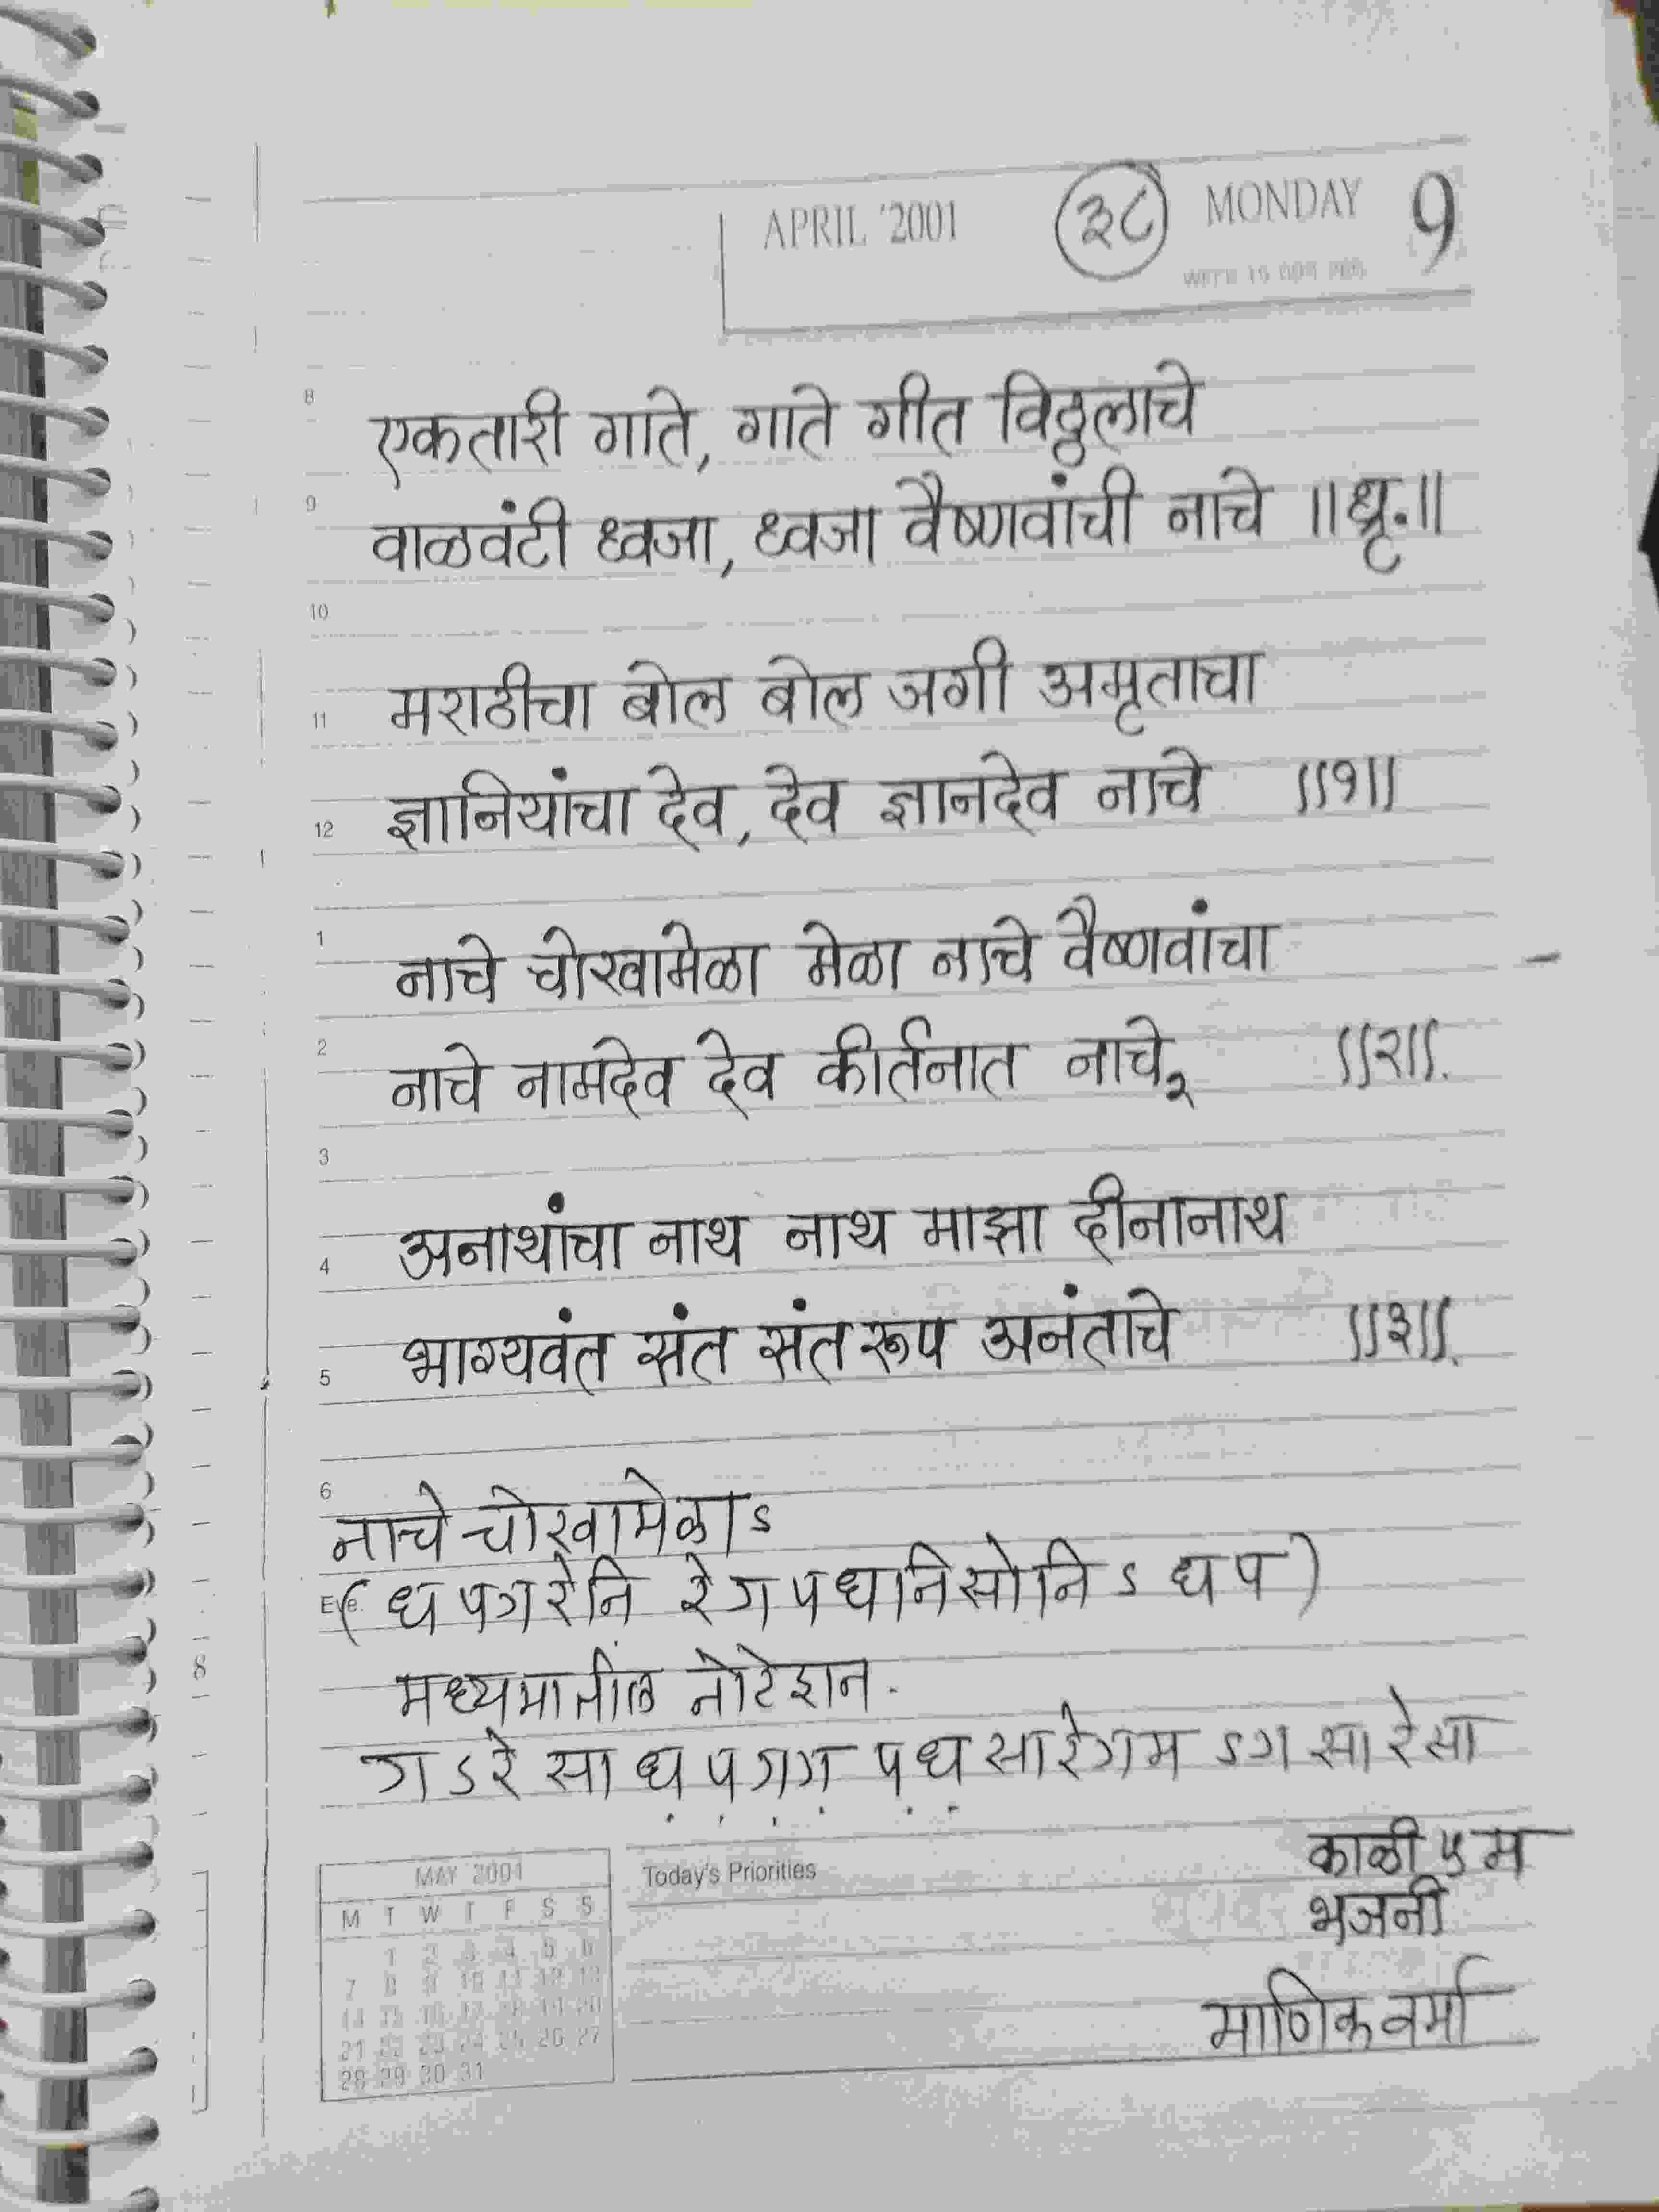 APRIL '2001 ३८ MONDAY 9
8 एकतारी गाते, गाते गीत विठ्ठलाचे
9 वाळवंटी ध्वजा, ध्वजा वैष्णवांची नाचे ॥धृ.॥
10
11 मराठीचा बोल बोल जगी अमृताचा
12 ज्ञानियांचा देव, देव ज्ञानदेव नाचे ॥१॥
1 नाचे चोखामेळा मेळा नाचे वैष्णवांचा
2 नाचे नामदेव देव कीर्तनात नाचे२ ॥२॥.
3
4 अनाथांचा नाथ नाथ माझा दीनानाथ
5 भाग्यवंत संत संत रूप अनंताचे ॥३॥.
6
नाचे चोखामेळाऽ
Eve. (ध प ग रे नि रे ग प ध नि सो नि ऽ ध प)
8
मध्यमातील नोटेशन.
ग ऽ रे सा ध़ प़ ग़ ग़ प़ ध़ सा रे ग म ऽ ग सा रे सा
काळी ५ म
भजनी
माणिक वर्मा
MAY 2001
M T W T F S S
1 2 3 4 5 6
7 8 9 10 11 12 13
14 15 16 17 18 19 20
21 22 23 24 25 26 27
28 29 30 31
Today's Priorities